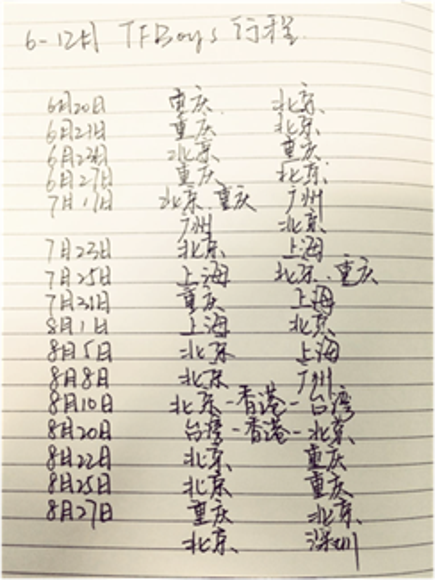 6-12月 TFBoys 行程
6月20日 重庆 北京
6月21日 重庆 北京
6月23日 北京 重庆
6月27日 重庆 北京
7月17日 北京、重庆 广州
广州 北京
7月23日 北京 上海
7月25日 上海 北京、重庆
7月31日 重庆 上海
8月1日 上海 北京
8月5日 北京 上海
8月8日 北京 广州
8月10日 北京-香港-台湾
8月20日 台湾-香港-北京
8月22日 北京 重庆
8月25日 北京 重庆
8月27日 重庆 北京
北京 深圳